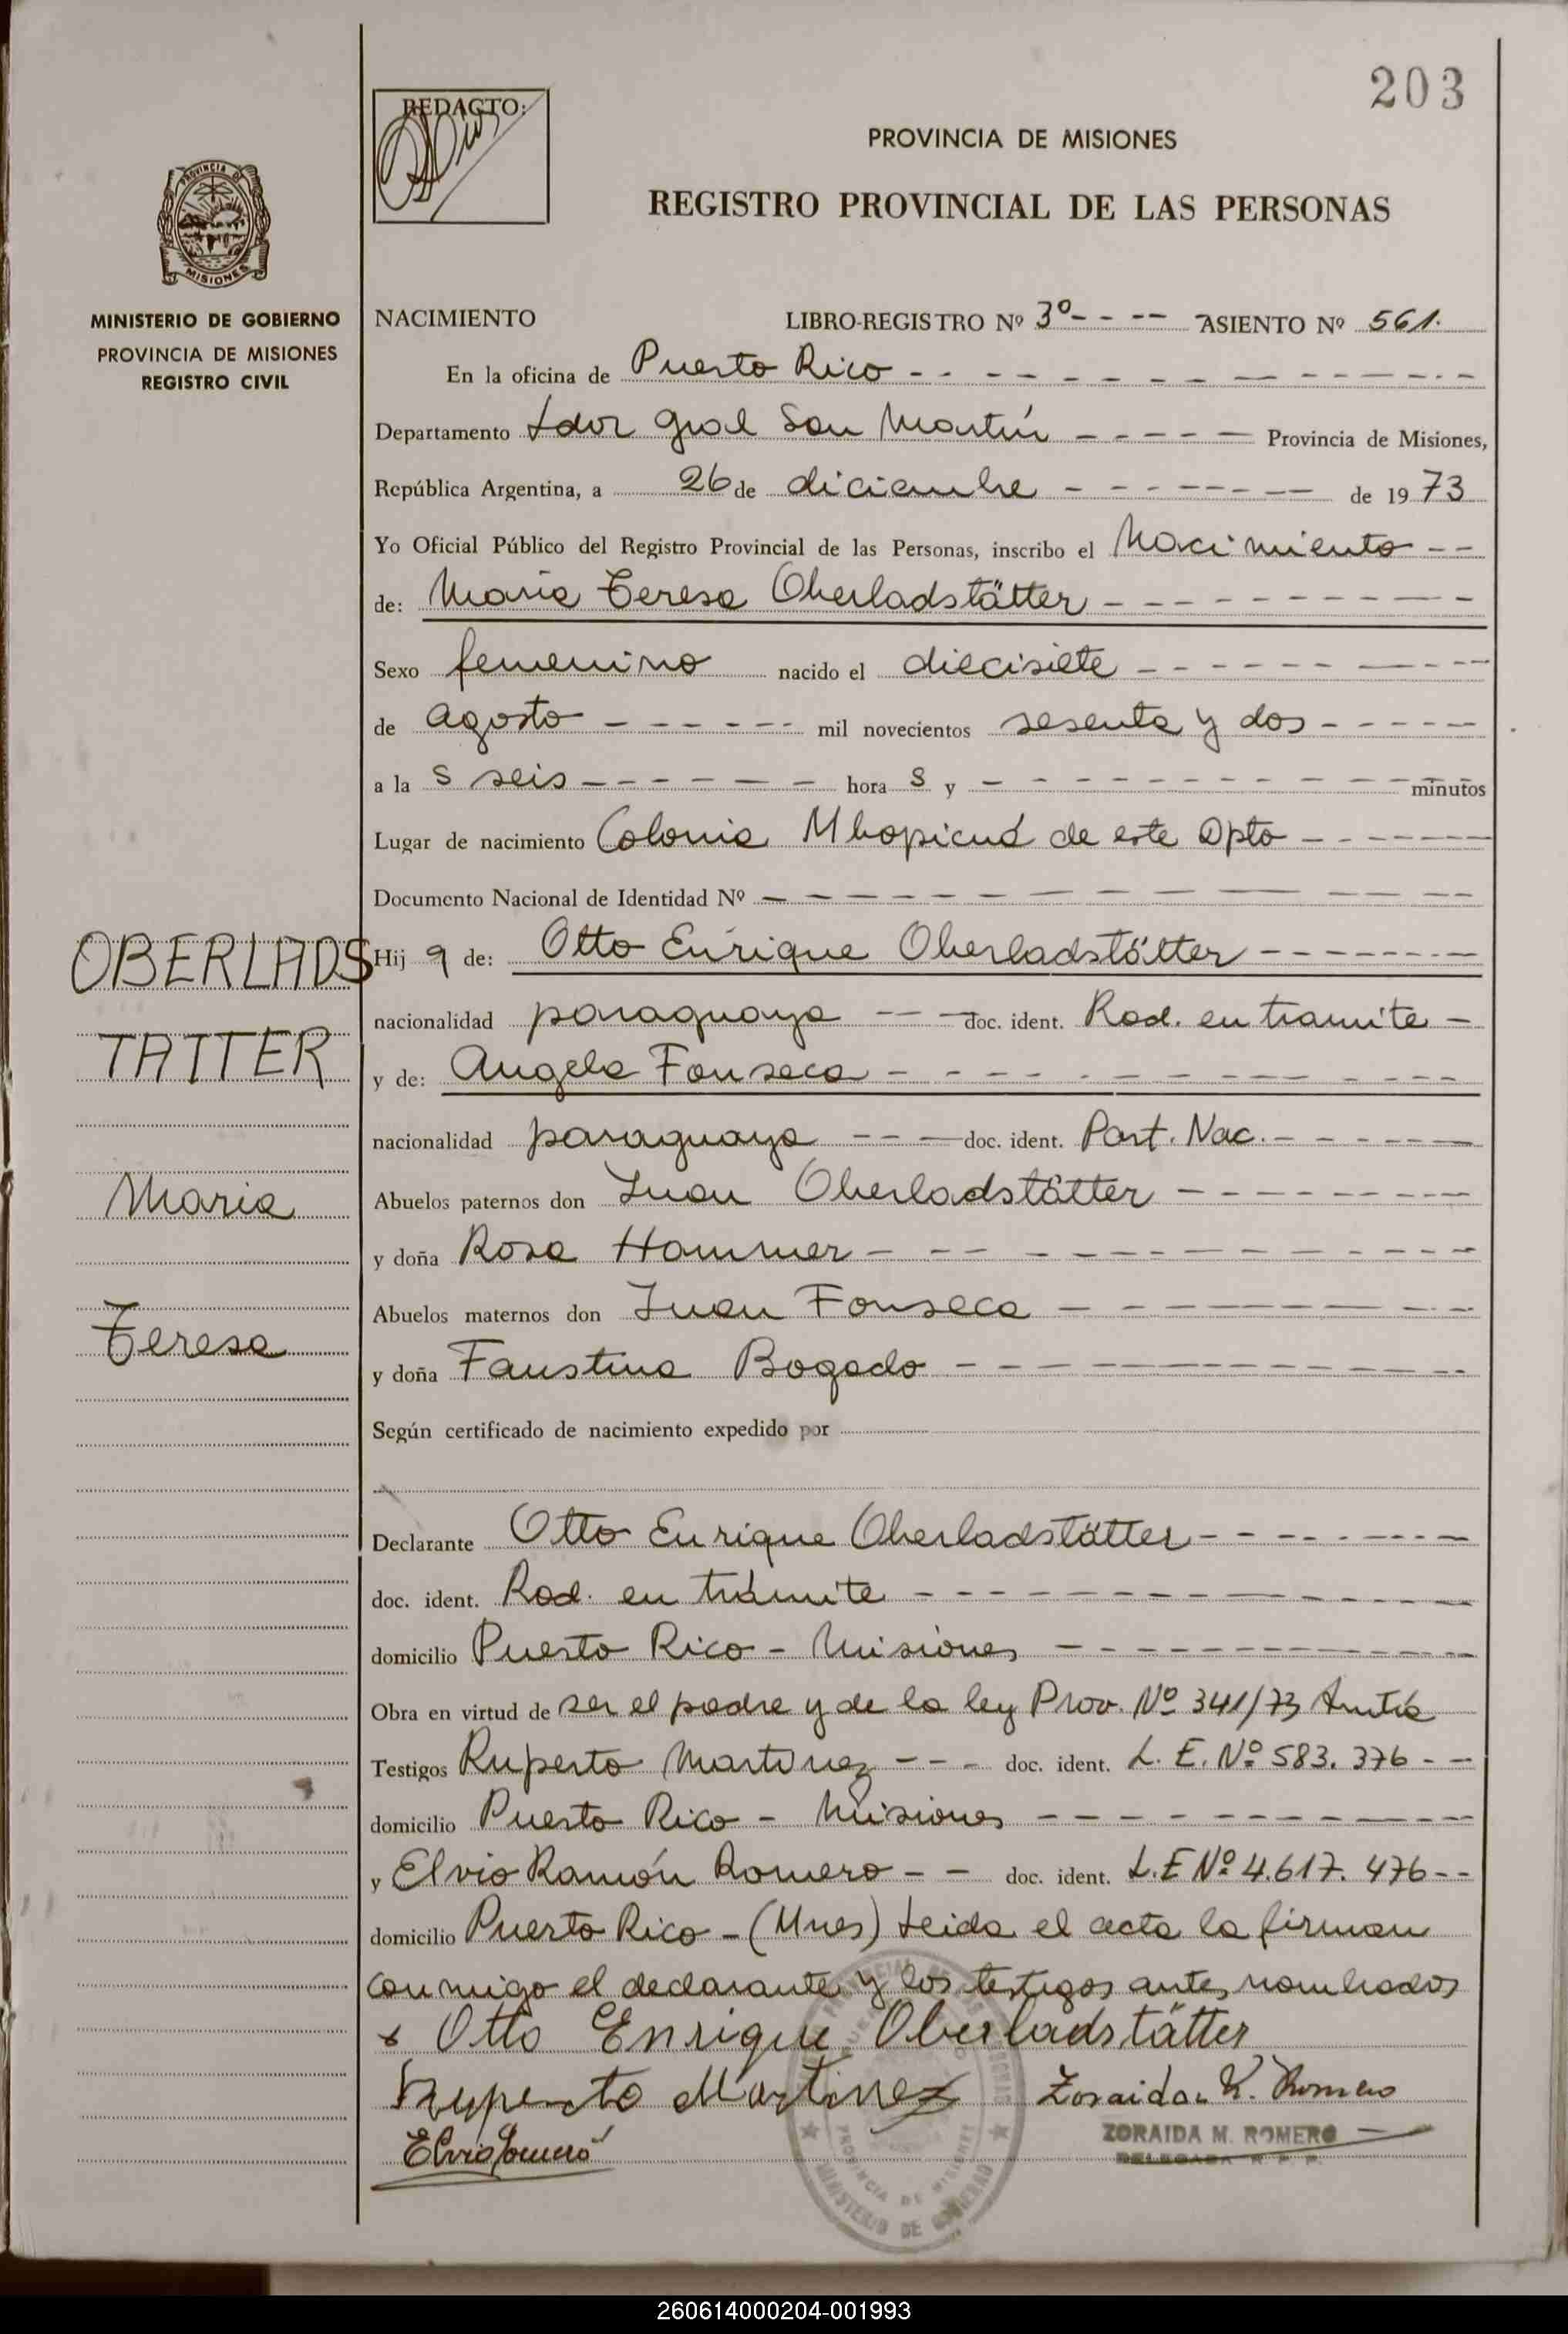 203
REDACTO:
PROVINCIA DE MISIONES
REGISTRO PROVINCIAL DE LAS PERSONAS
PROVINCIA DE
MISIONES
MINISTERIO DE GOBIERNO
PROVINCIA DE MISIONES
REGISTRO CIVIL
NACIMIENTO LIBRO-REGISTRO Nº 3º - - -- ASIENTO Nº 561.
En la oficina de Puerto Rico
Departamento Ldor Gral San Martín Provincia de Misiones,
República Argentina, a 26 de diciembre de 1973
Yo Oficial Público del Registro Provincial de las Personas, inscribo el Nacimiento
de: María Teresa Oberladstätter
Sexo femenino nacido el diecisiete
de agosto mil novecientos sesenta y dos
a la s seis hora s y minutos
Lugar de nacimiento Colonia Mbopicuá de este Dpto
Documento Nacional de Identidad Nº
OBERLADS
TATTER
Maria
Teresa
Hij a de: Otto Enrique Oberladstätter
nacionalidad paraguaya doc. ident. Rad. en tramite
y de: Angela Fonseca
nacionalidad paraguaya doc. ident. Part. Nac.
Abuelos paternos don Juan Oberladstätter
y doña Rosa Hammer
Abuelos maternos don Juan Fonseca
y doña Faustina Bogado
Según certificado de nacimiento expedido por
Declarante Otto Enrique Oberladstätter
doc. ident. Rad. en trámite
domicilio Puerto Rico - Misiones
Obra en virtud de ser el padre y de la ley Prov. Nº 341/73
Testigos Ruperto Martinez doc. ident. L. E. Nº 583. 376
domicilio Puerto Rico - Misiones
y Elvio Ramón Romero doc. ident. L.E Nº 4.617. 476
domicilio Puerto Rico - (Mnes) Leida el acta la firman
conmigo el declarante y los testigos antes nombrados
x Otto Enrique Oberladstätter
Ruperto Martinez Zoraida M. Romero
ZORAIDA M. ROMERO
Elvio Romero
PROVINCIA DE MISIONES
MINISTERIO DE GOBIERNO
260614000204-001993